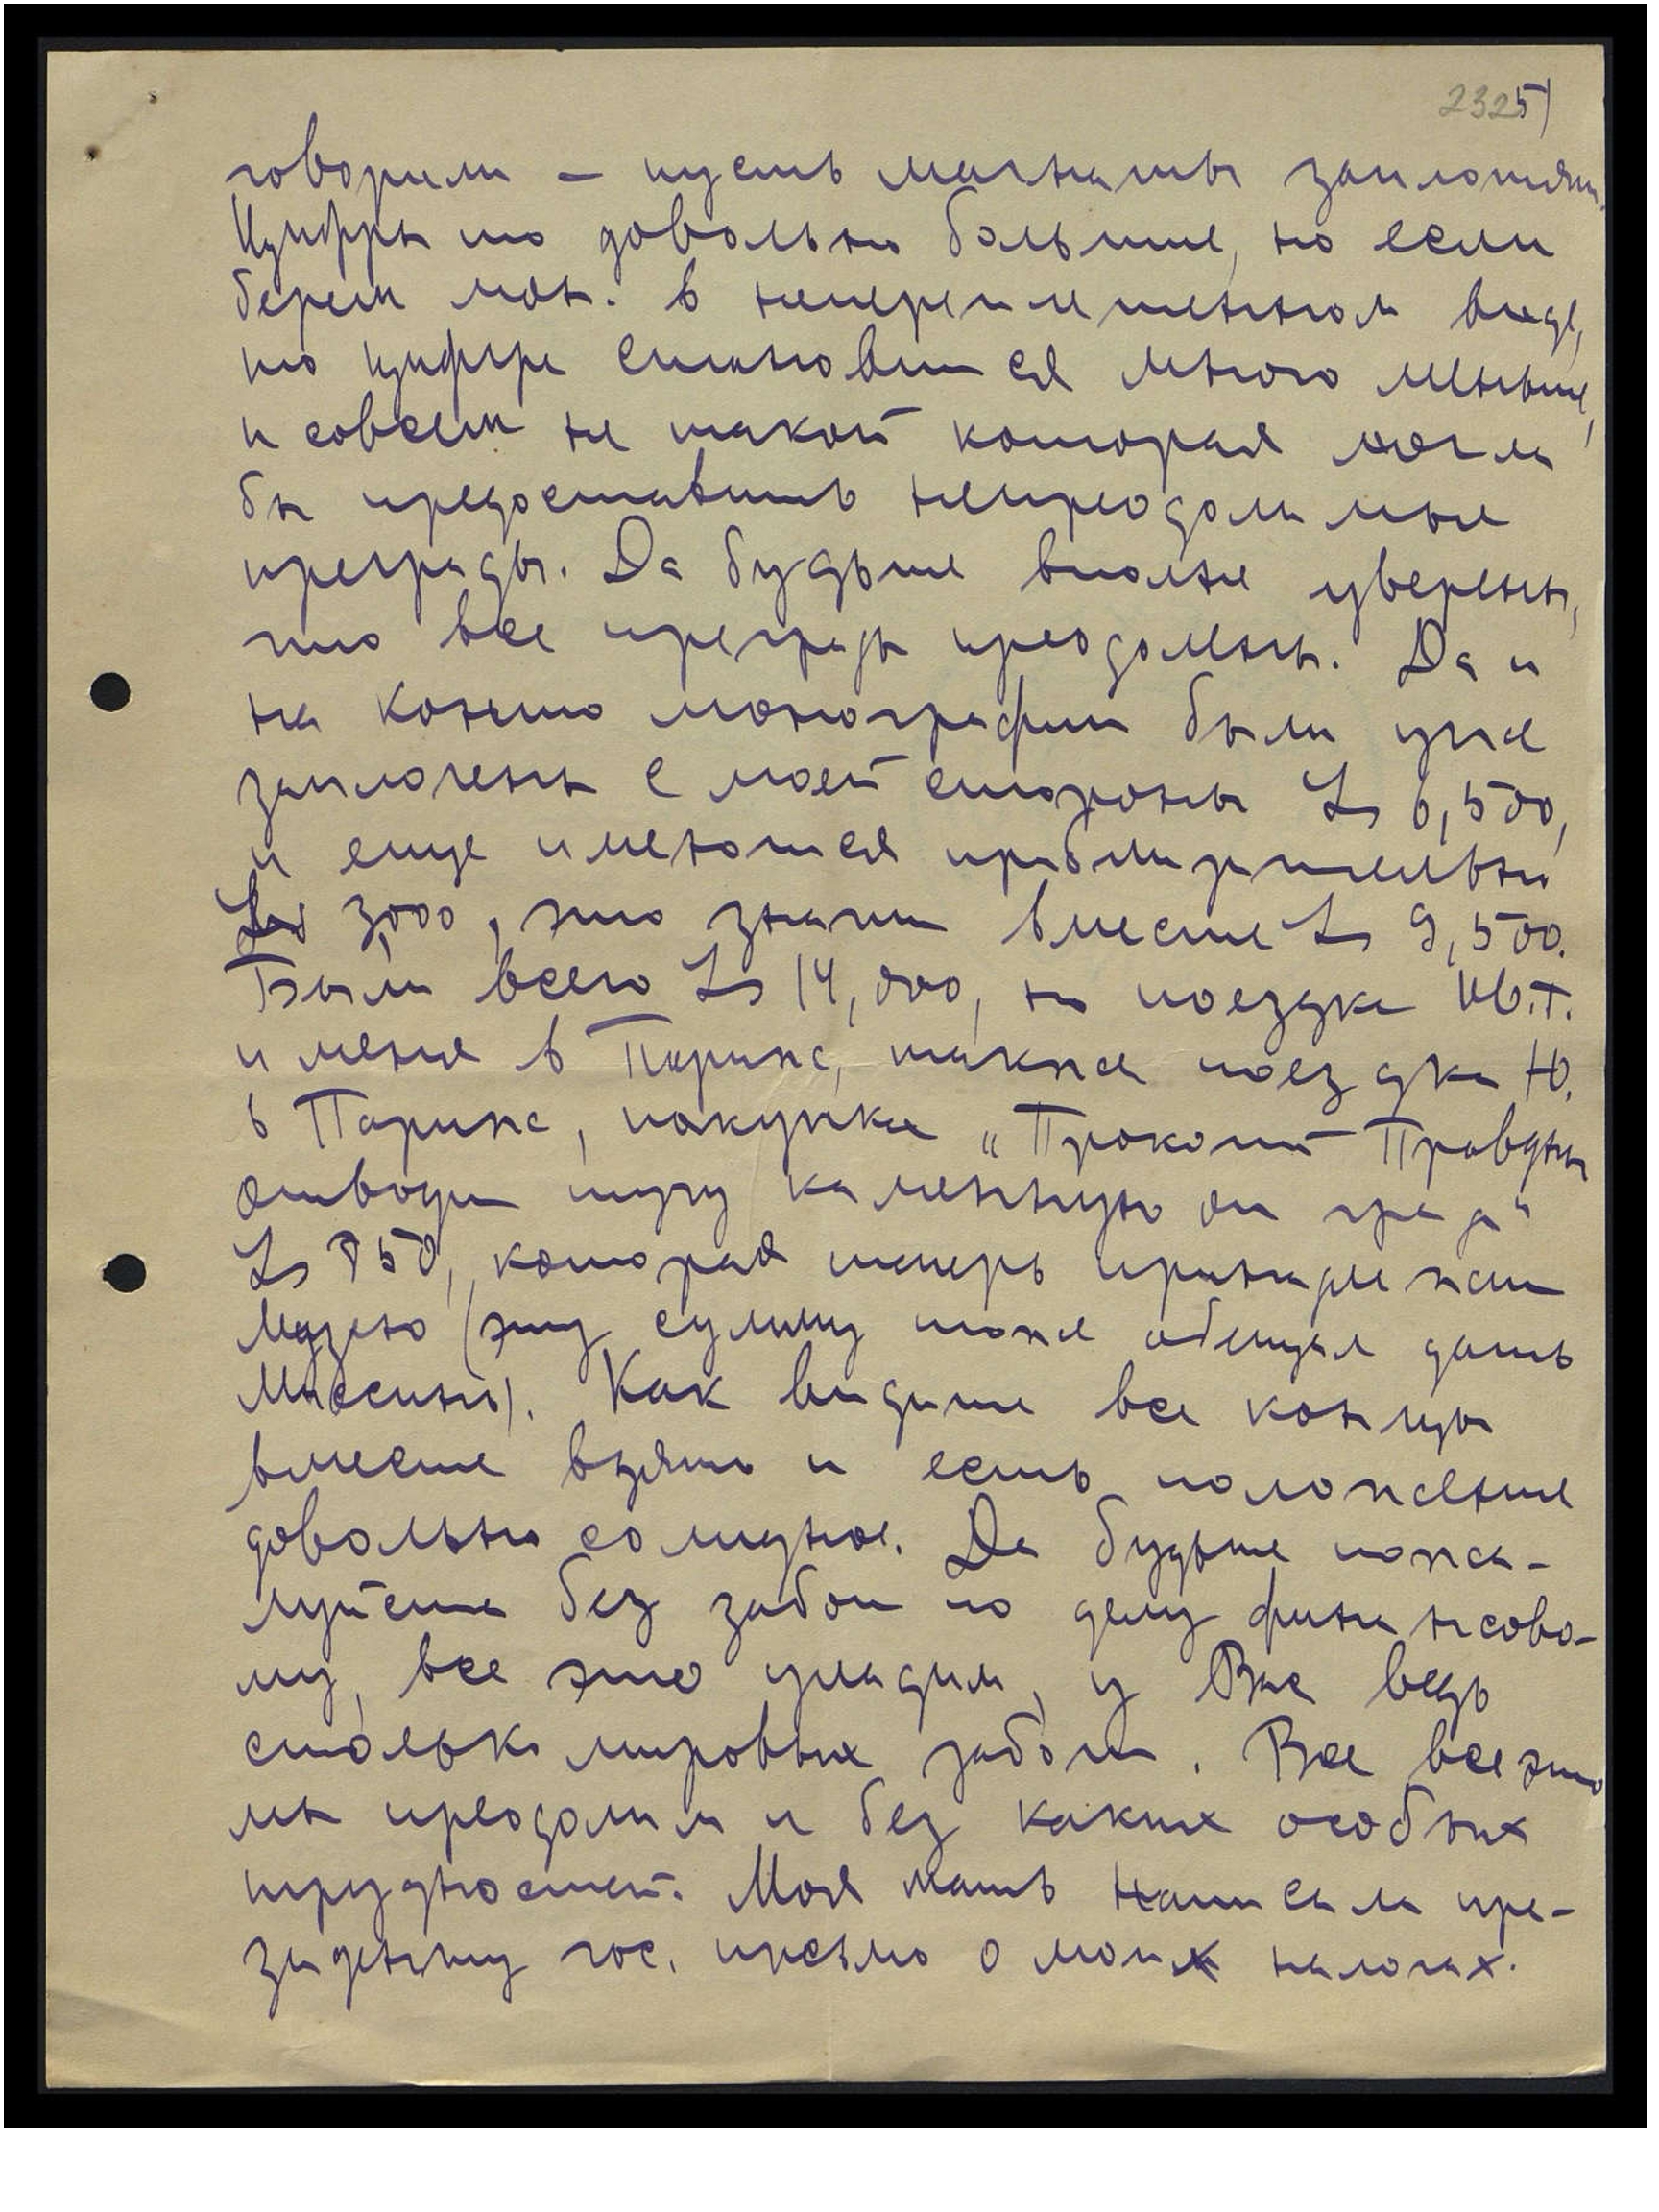 2325)
говорили – пусть магнаты заплотят.
Цифры то довольно большие, но если
берем мон. в непереплетенном виде,
то цифре становится много меньше,
и совсем не такой которая могла
бы предоставить непреодолимые
преграды. Да будьте вполне уверены,
что все преграды преодолены. Да и
на конто монографии были уже
заплочены с моей стороны Ls 6,500,
и еще имеются приблизительно
Ls 3000, это значит вместе Ls 9,500.
Были всего Ls 14,000, но поездка Ив.Г.
и меня в Париж, также поездка Ю.
в Париж, покупка „Прокопий Праведный
отводит тучу каменную от града"
Ls 850, которая теперь принадлежит
Музею (эту сумму тоже обещал дать
Миссинь). Как видите все концы
вместе взято и есть положение
довольно солидное. Да будьте пожа-
луйста без забот по делу финансово-
му, все это уладим, у Вас ведь
столько мировых забот. Все все это
мы преодолим и без каких особых
трудностей. Моя мать написала пре-
зиденту гос. письмо о моих налогах.